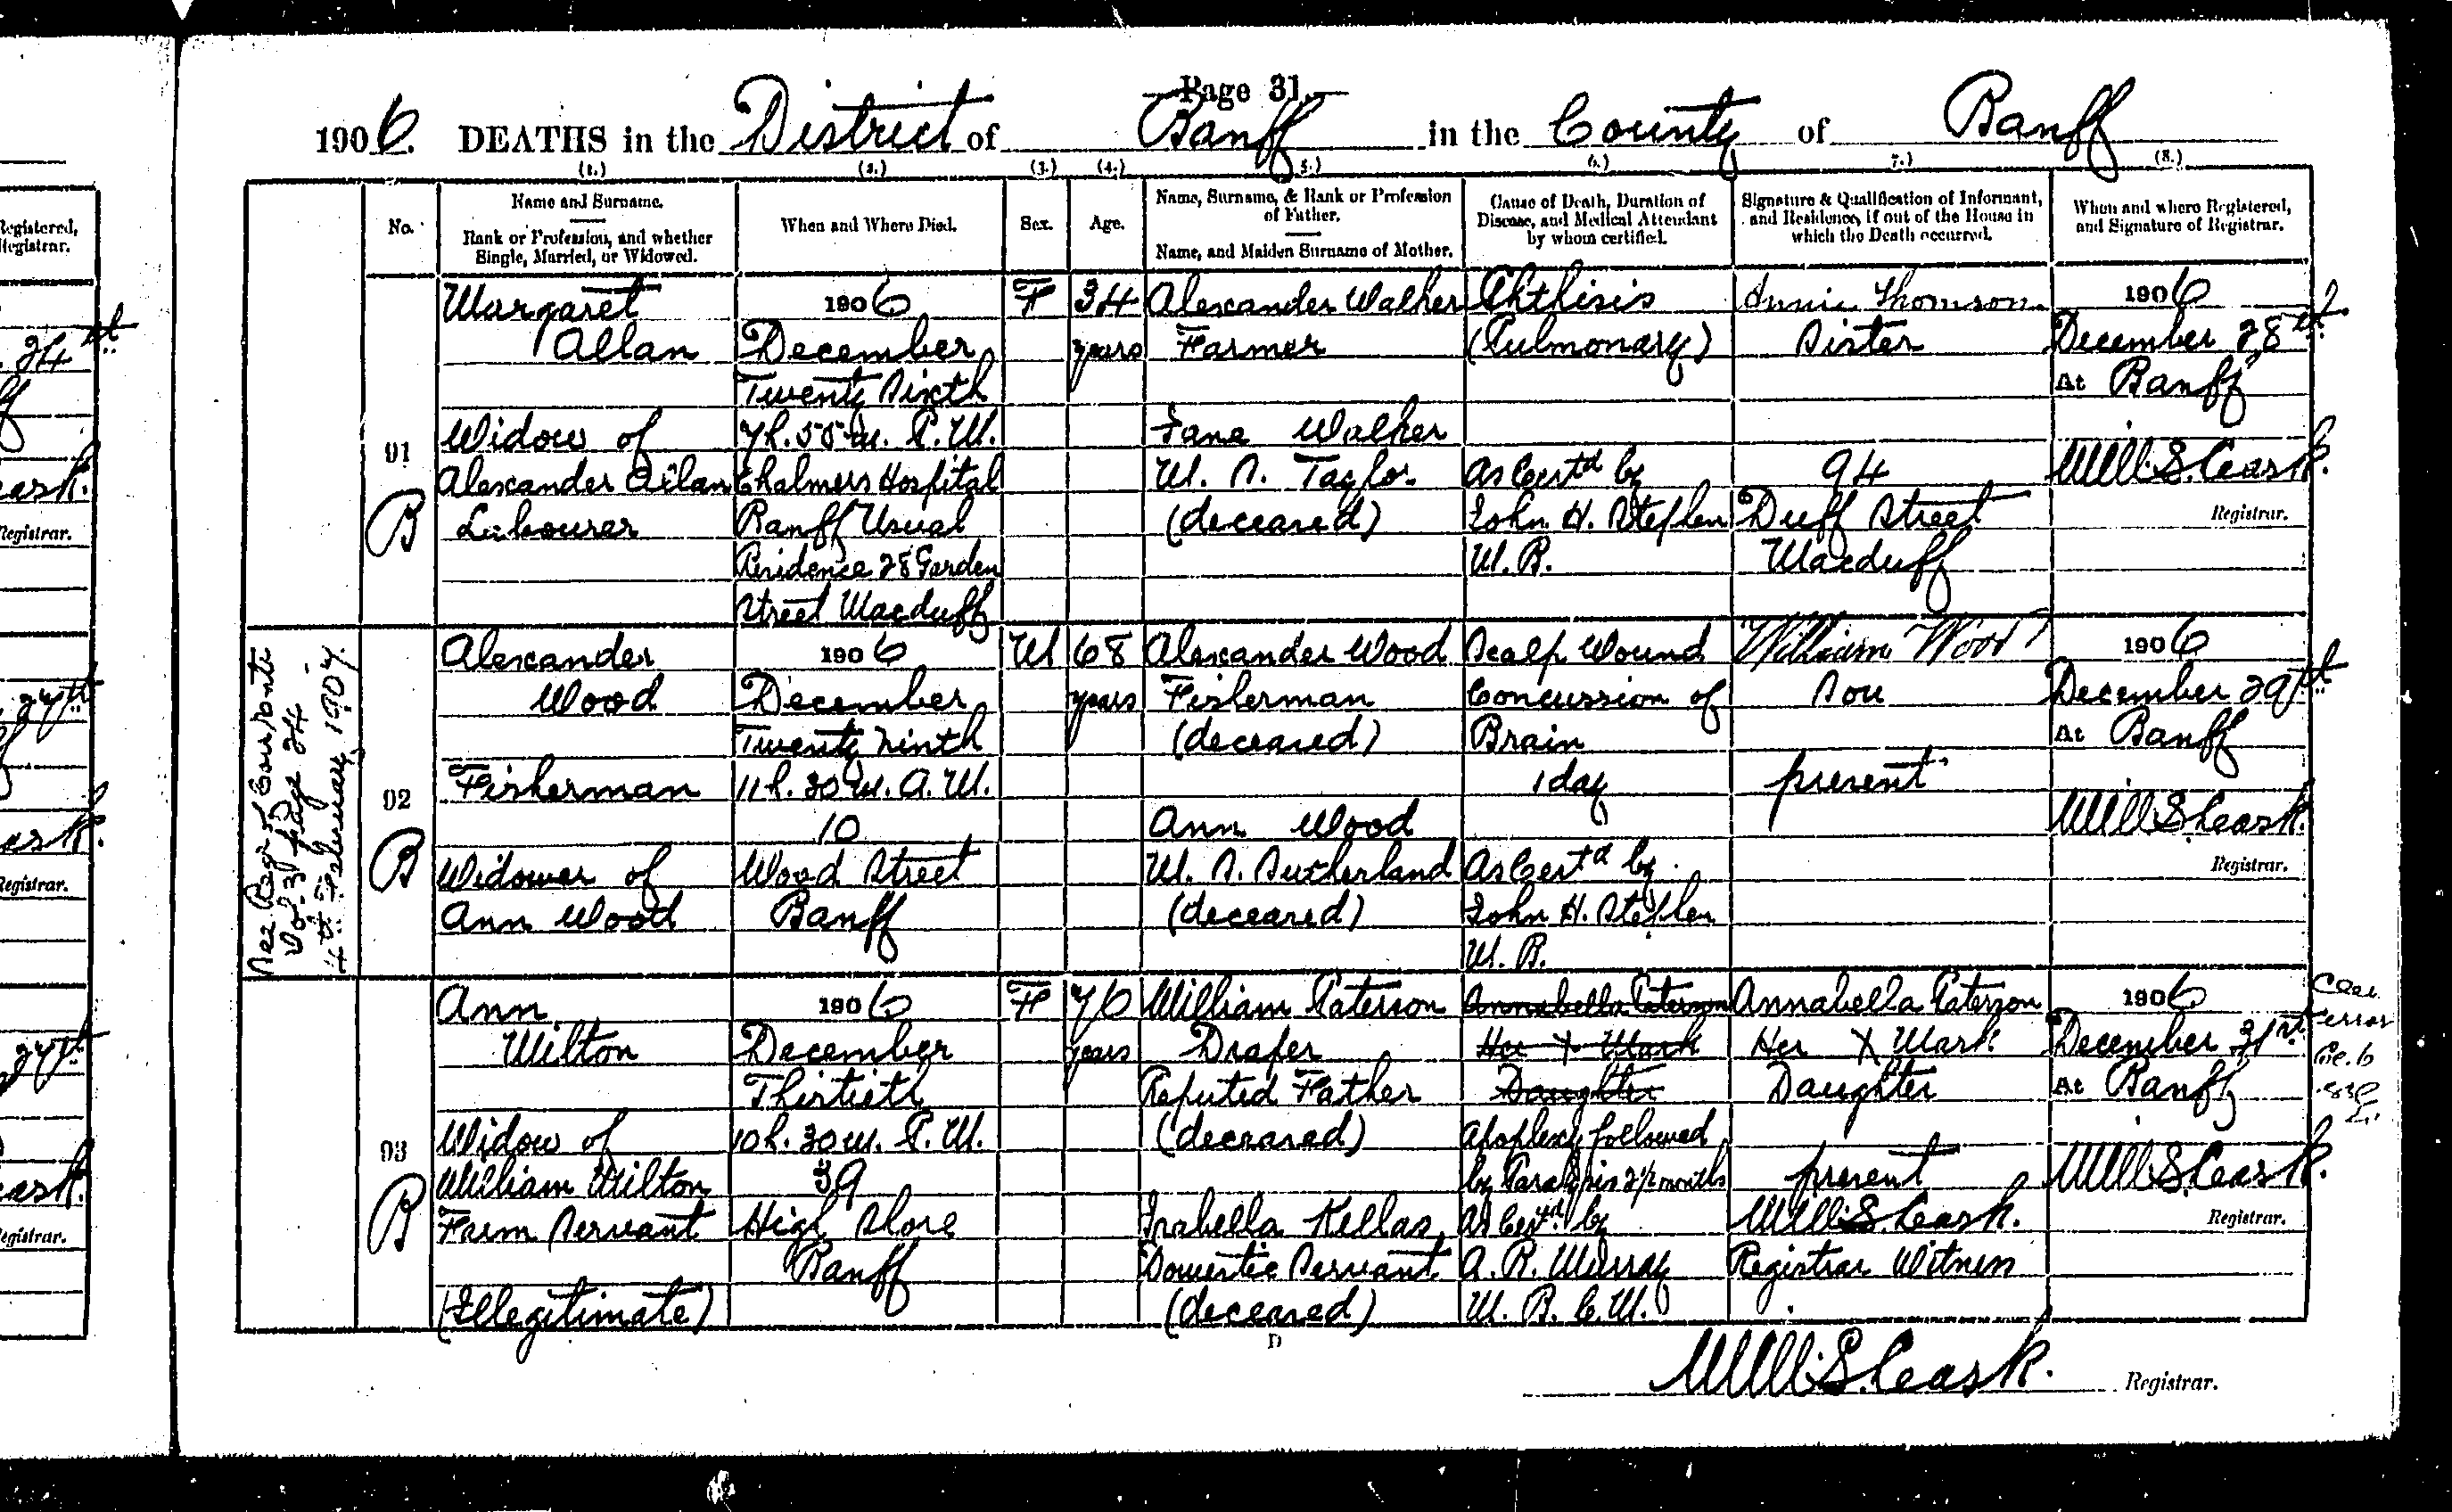 Page 31.
1906. DEATHS in the District of Banff in the County of Banff
(1.) (2.) (3.) (4.) (5.) 6.) 7.) (8.)
No.
Name and Surname.
Rank or Profession, and whether
Single, Married, or Widowed.
When and Where Died.
Sex.
Age.
Name, Surname, & Rank or Profession
of Father.
Name, and Maiden Surname of Mother.
Cause of Death, Duration of
Disease, and Medical Attendant
by whom certified.
Signature & Qualification of Informant,
and Residence, if out of the House in
which the Death occurred.
When and where Registered,
and Signature of Registrar.
91
B
Margaret
Allan
Widow of
Alexander Allan
Labourer
1906
December
Twenty Sixth
7h. 55m. P.M.
Chalmers Hospital
Banff Usual
Residence 28 Garden
Street Macduff
F
34
years
Alexander Walker
Farmer
Jane Walker
M. S. Taylor
(deceased)
Phthisis
(Pulmonary)
As Certd by
John H. Stephen
M.B.
Annie Thomson
Sister
94
Duff Street
Macduff
1906
December 28th
At Banff
Will S. Leask.
Registrar.
92
B
Alexander
Wood
Fisherman
Widower of
Ann Wood
1906
December
Twenty Ninth
11h. 30m. A.M.
10
Wood Street
Banff
M
68
years
Alexander Wood
Fisherman
(deceased)
Ann Wood
M. S. Sutherland
(deceased)
Scalp Wound
Concussion of
Brain
1 day
As Certd by
John H. Stephen
M. B.
William Wood
Son
present
1906
December 29th
At Banff
Will S. Leask
Registrar.
Vol. 3 Page 24
4th February 1907.
93
B
Ann
Milton
Widow of
William Milton
Farm Servant
(Illegitimate)
1906
December
Thirtieth
10h. 30m. P.M.
39
High Shore
Banff
F
76
years
William Paterson
Draper
Reputed Father
(deceased)
Isabella Kellas,
Domestic Servant
(deceased)
Annabella Paterson
Her X Mark
Daughter
Apoplexy followed
by Paralysis 2½ months
As Certd by
A. R. Murray
M. B. C.M.
Annabella Paterson
Her X Mark
Daughter
present
Will S. Leask.
Registrar Witness
1906
December 31st
At Banff
Will S. Leask.
Registrar.
error
D
Will S. Leask.
Registrar.
Registered,
Registrar.
24th
Leask.
Registrar.
27th
Leask.
Registrar.
27th
Leask.
Registrar.